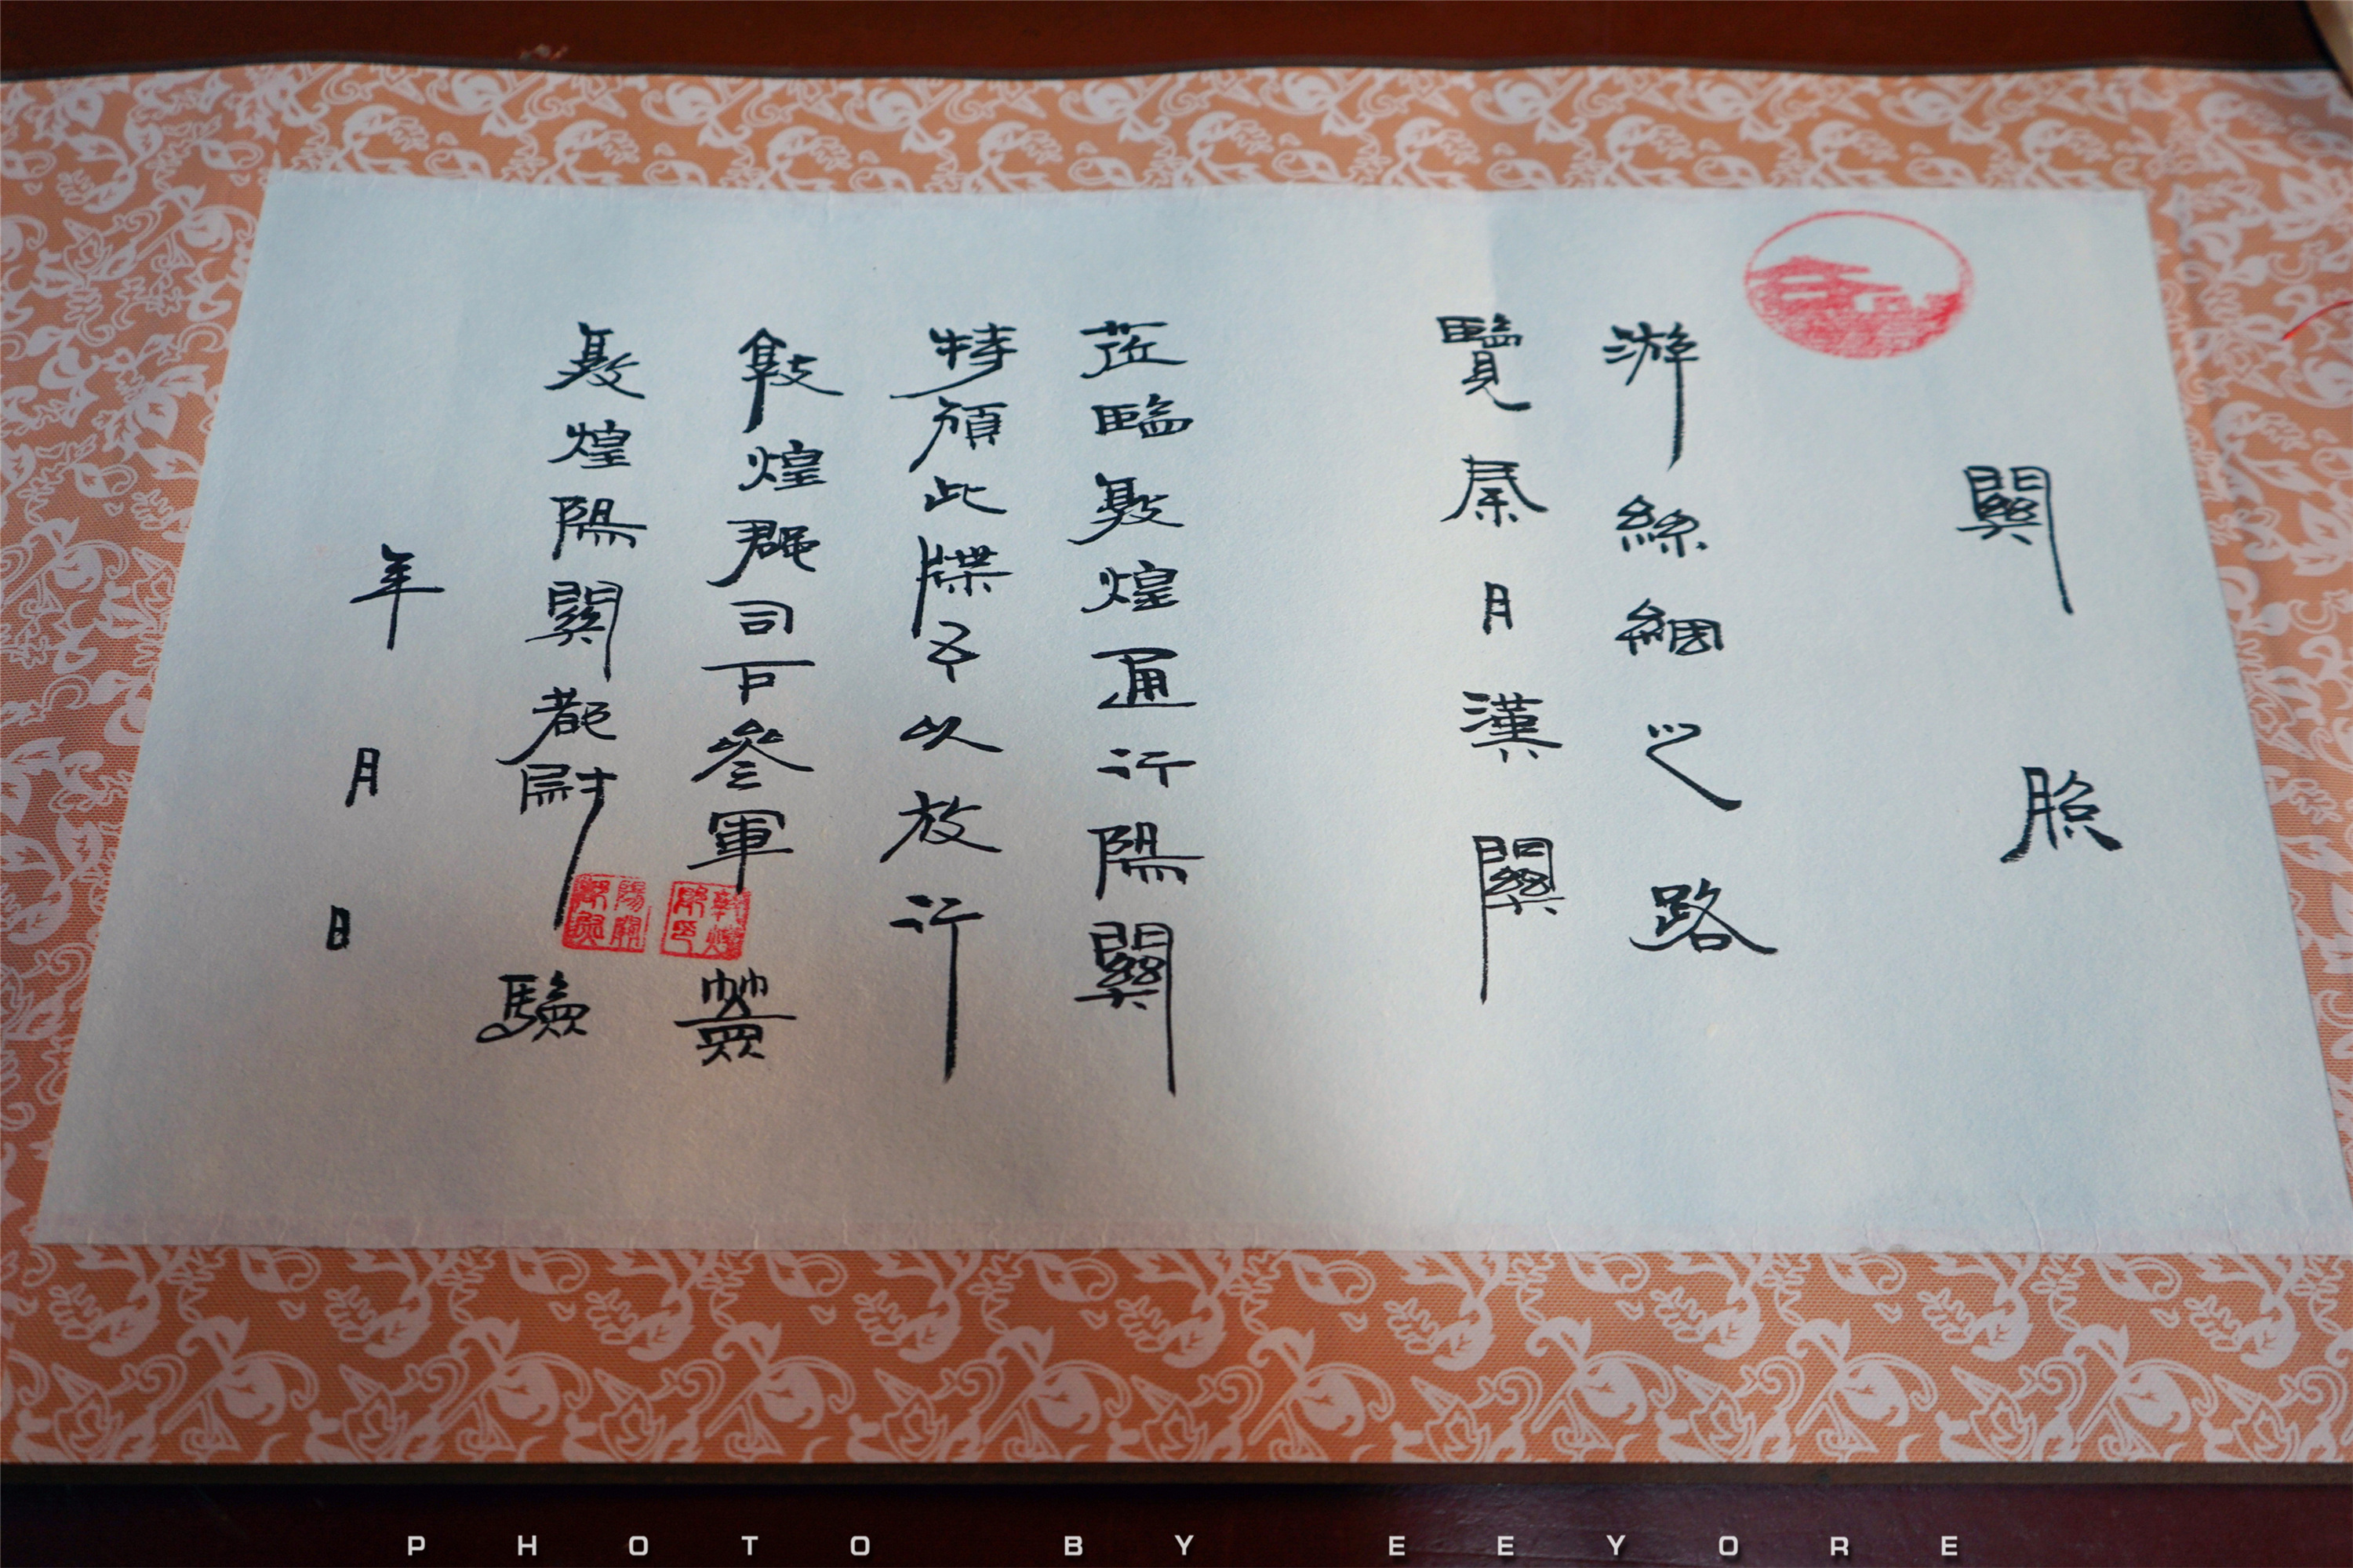 關照
游絲綢之路
覽秦月漢關
蒞臨敦煌通行陽關
特頒此牒予以放行
敦煌郡司戶參軍
敦煌陽關都尉
驗
年月日
PHOTO BY EEYORE